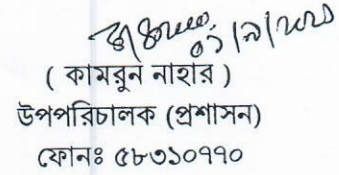 ০১/৯/২০২১
( কামরুন নাহার )
উপপরিচালক (প্রশাসন)
ফোনঃ ৫৮৩১০৭৭০